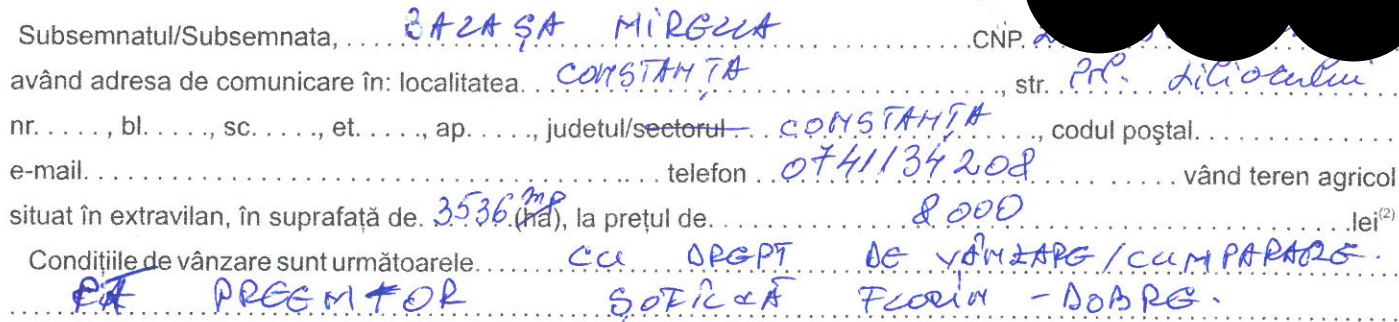 Subsemnatul/Subsemnata, BAZAȘA MIRELLA CNP
având adresa de comunicare în: localitatea CONSTANȚA, str. Prl. Liliacului
nr. ....., bl. ....., sc. ....., et. ....., ap. ....., judetul/sectorul CONSTANȚA, codul poştal
e-mail telefon 0741134208 vând teren agricol
situat în extravilan, în suprafaţă de 3536 mp (ha), la preţul de 8000 lei(2)
Condiţiile de vânzare sunt următoarele CU DREPT DE VÂNZARE/CUMPARARE.
PREEMTOR FLORIN - DOBRE.